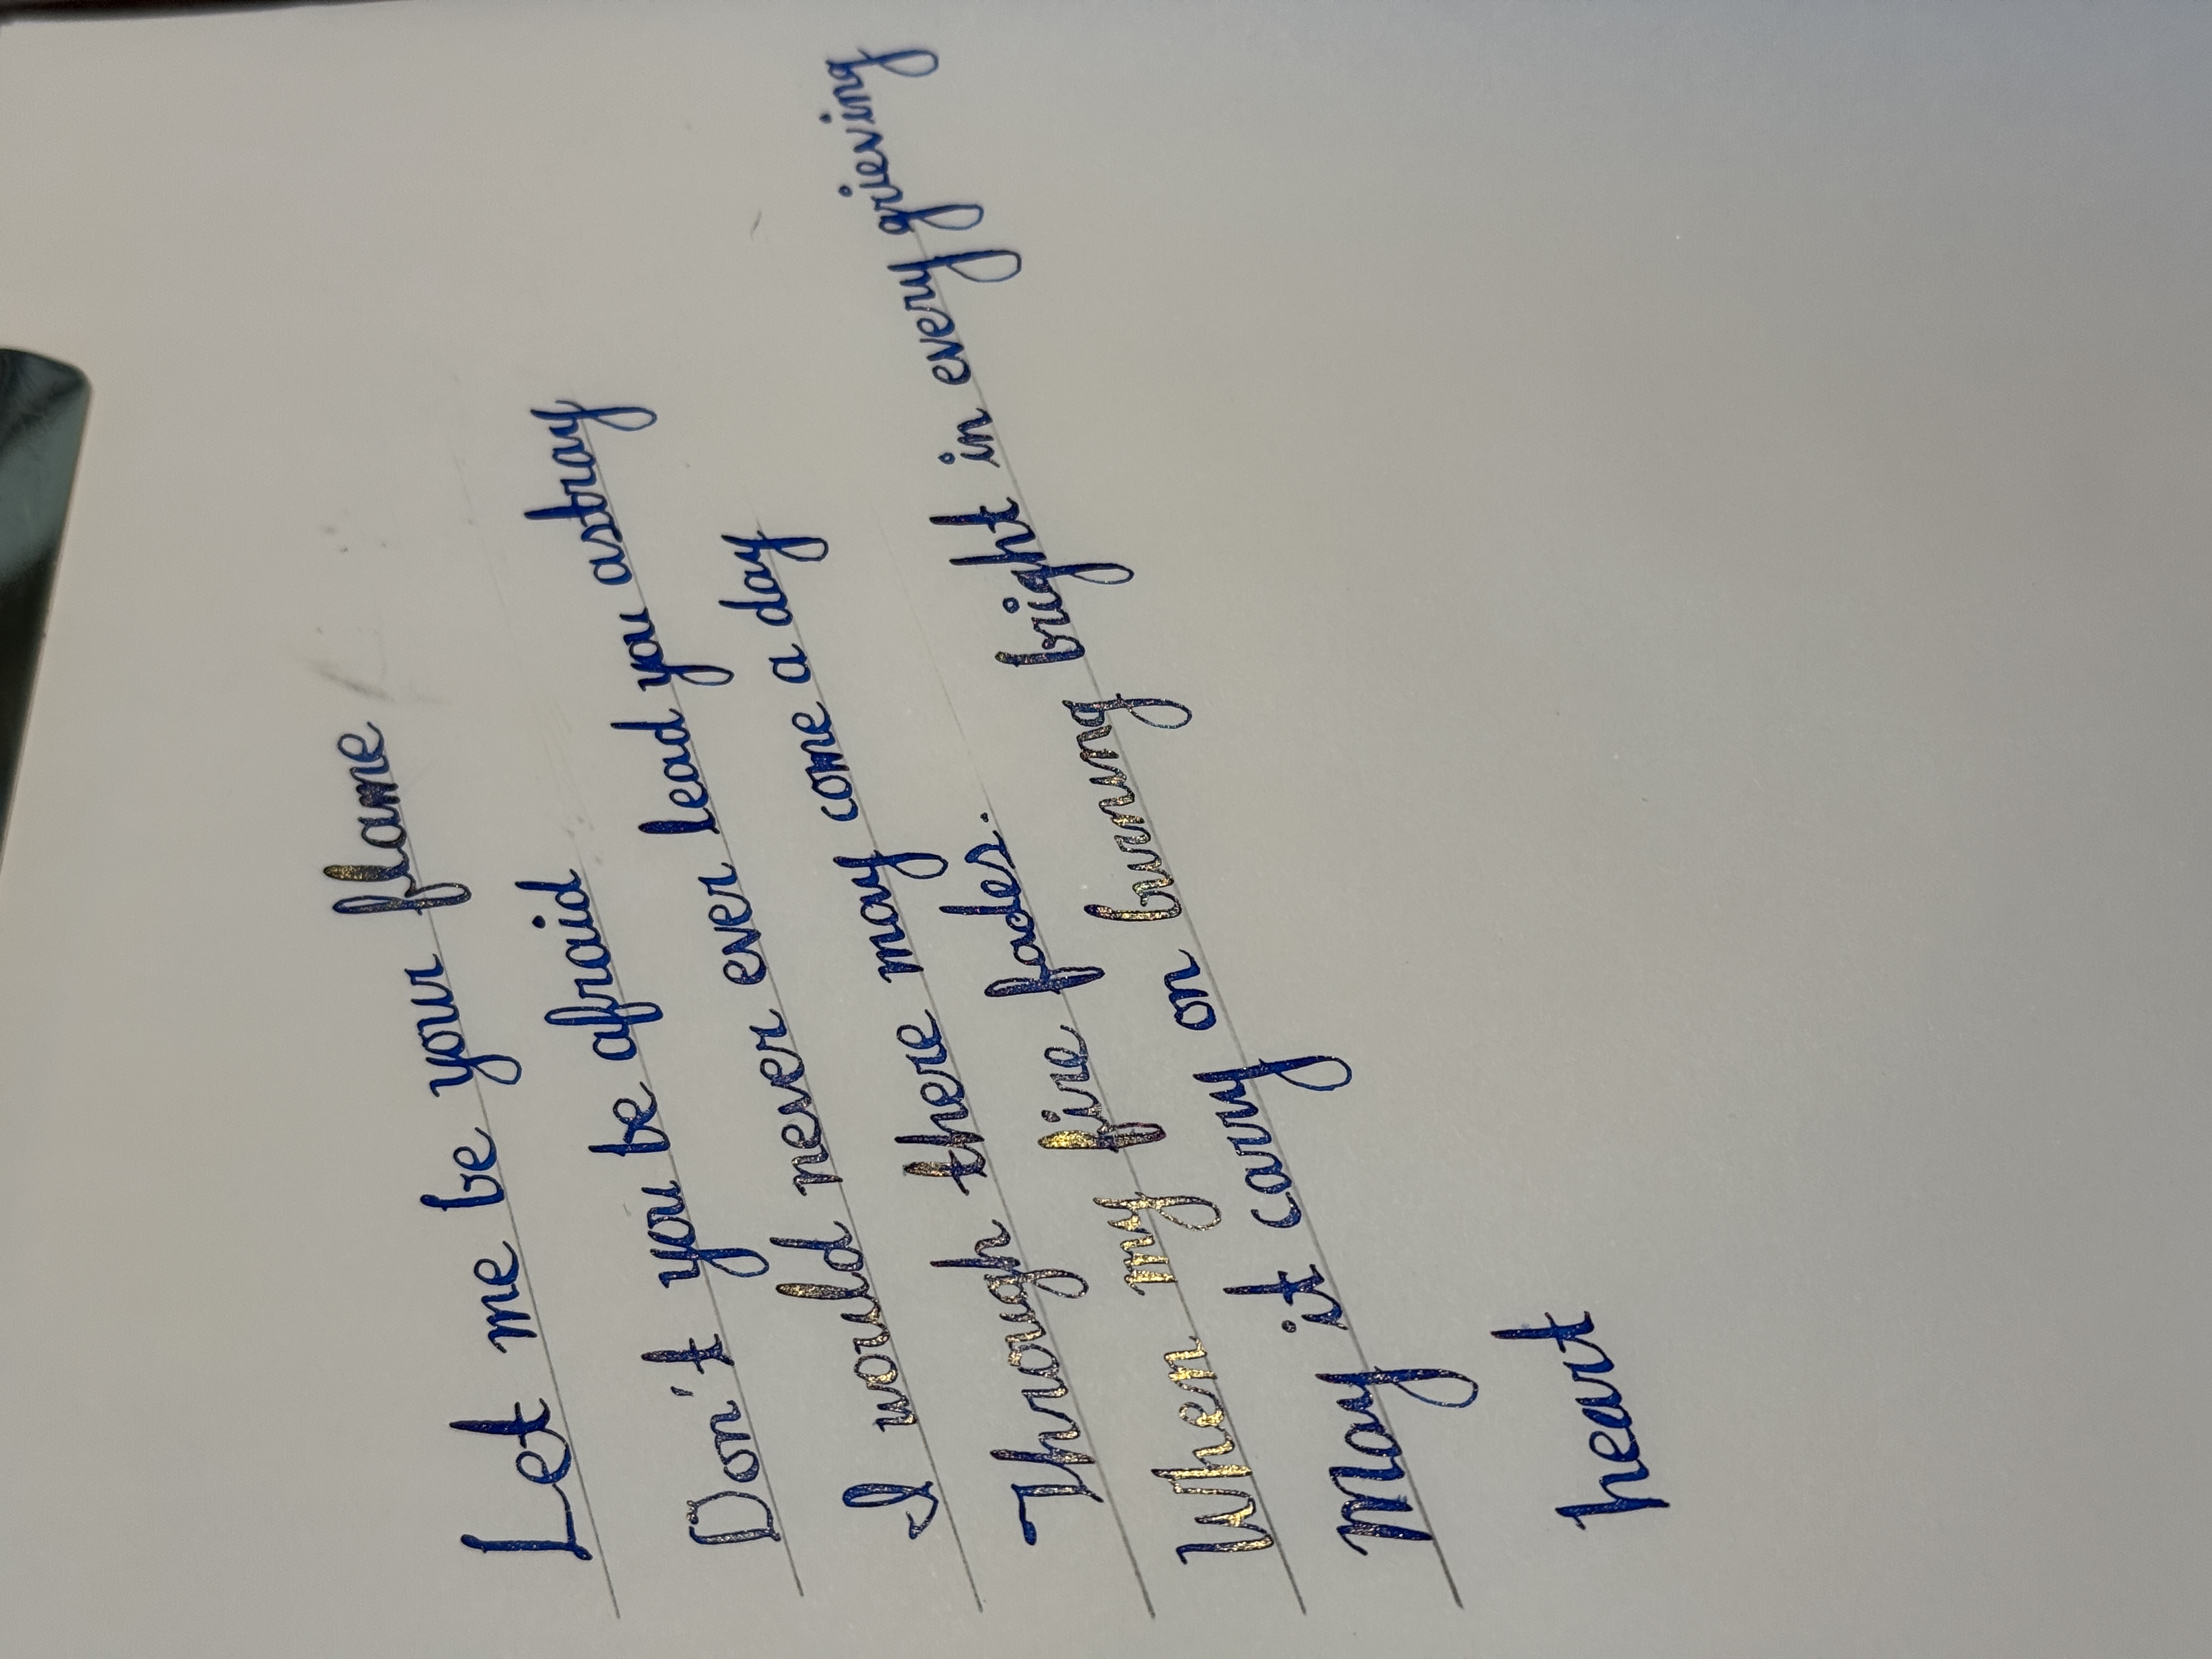 Let me be your flame
Don't you be afraid
I would never ever Lead you astray
Through there may come a day
When my fire fades.
May it carry on burning bright in every grieving
heart